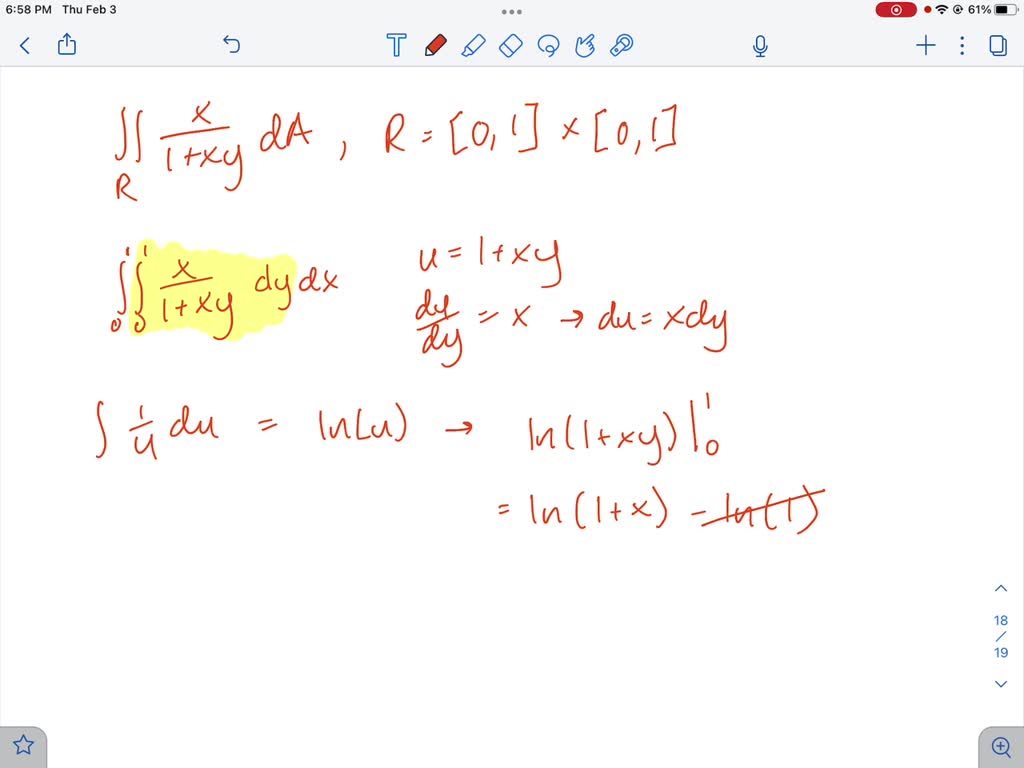 6:58 PM Thu Feb 3
61%
T
∬ x/(1+xy) dA , R = [0,1] × [0,1]
R
∫₀¹ ∫₀¹ x/(1+xy) dy dx
u = 1+xy
du/dy = x → du = xdy
∫ 1/u du = ln(u) → ln(1+xy) |₀¹
= ln(1+x) - ln(1)
18
/
19